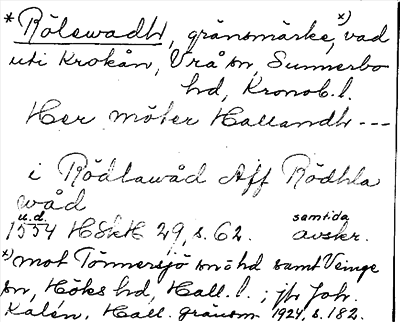 * Rölswadh, gränsmärke, x) vad
uti Krokån, Vrå sn, Sunnerbo
hd, Kronob. l.
Her möter Hallandh ---
i Rödlawåd Aff Rödhla
wåd
u.d. samtida
1554 HSkH 29, s. 62. avskr.
x) mot Tönnersjö sn o hd samt Veinge
sn, Höks hd, Hall. l.; jfr Joh.
Kalén, Hall. gränsom 1924, s. 182.